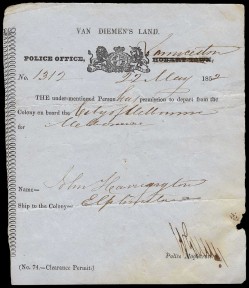 VAN DIEMEN'S LAND.
Launceston
POLICE OFFICE,
No. 1312 27 May 1852
THE under-mentioned Person has permission to depart from the
Colony on board the City of Melbourne for
Melbourne
Name—
John Harrington
Ship to the Colony—
Police Magistrate
(No. 74.—Clearance Permit.)